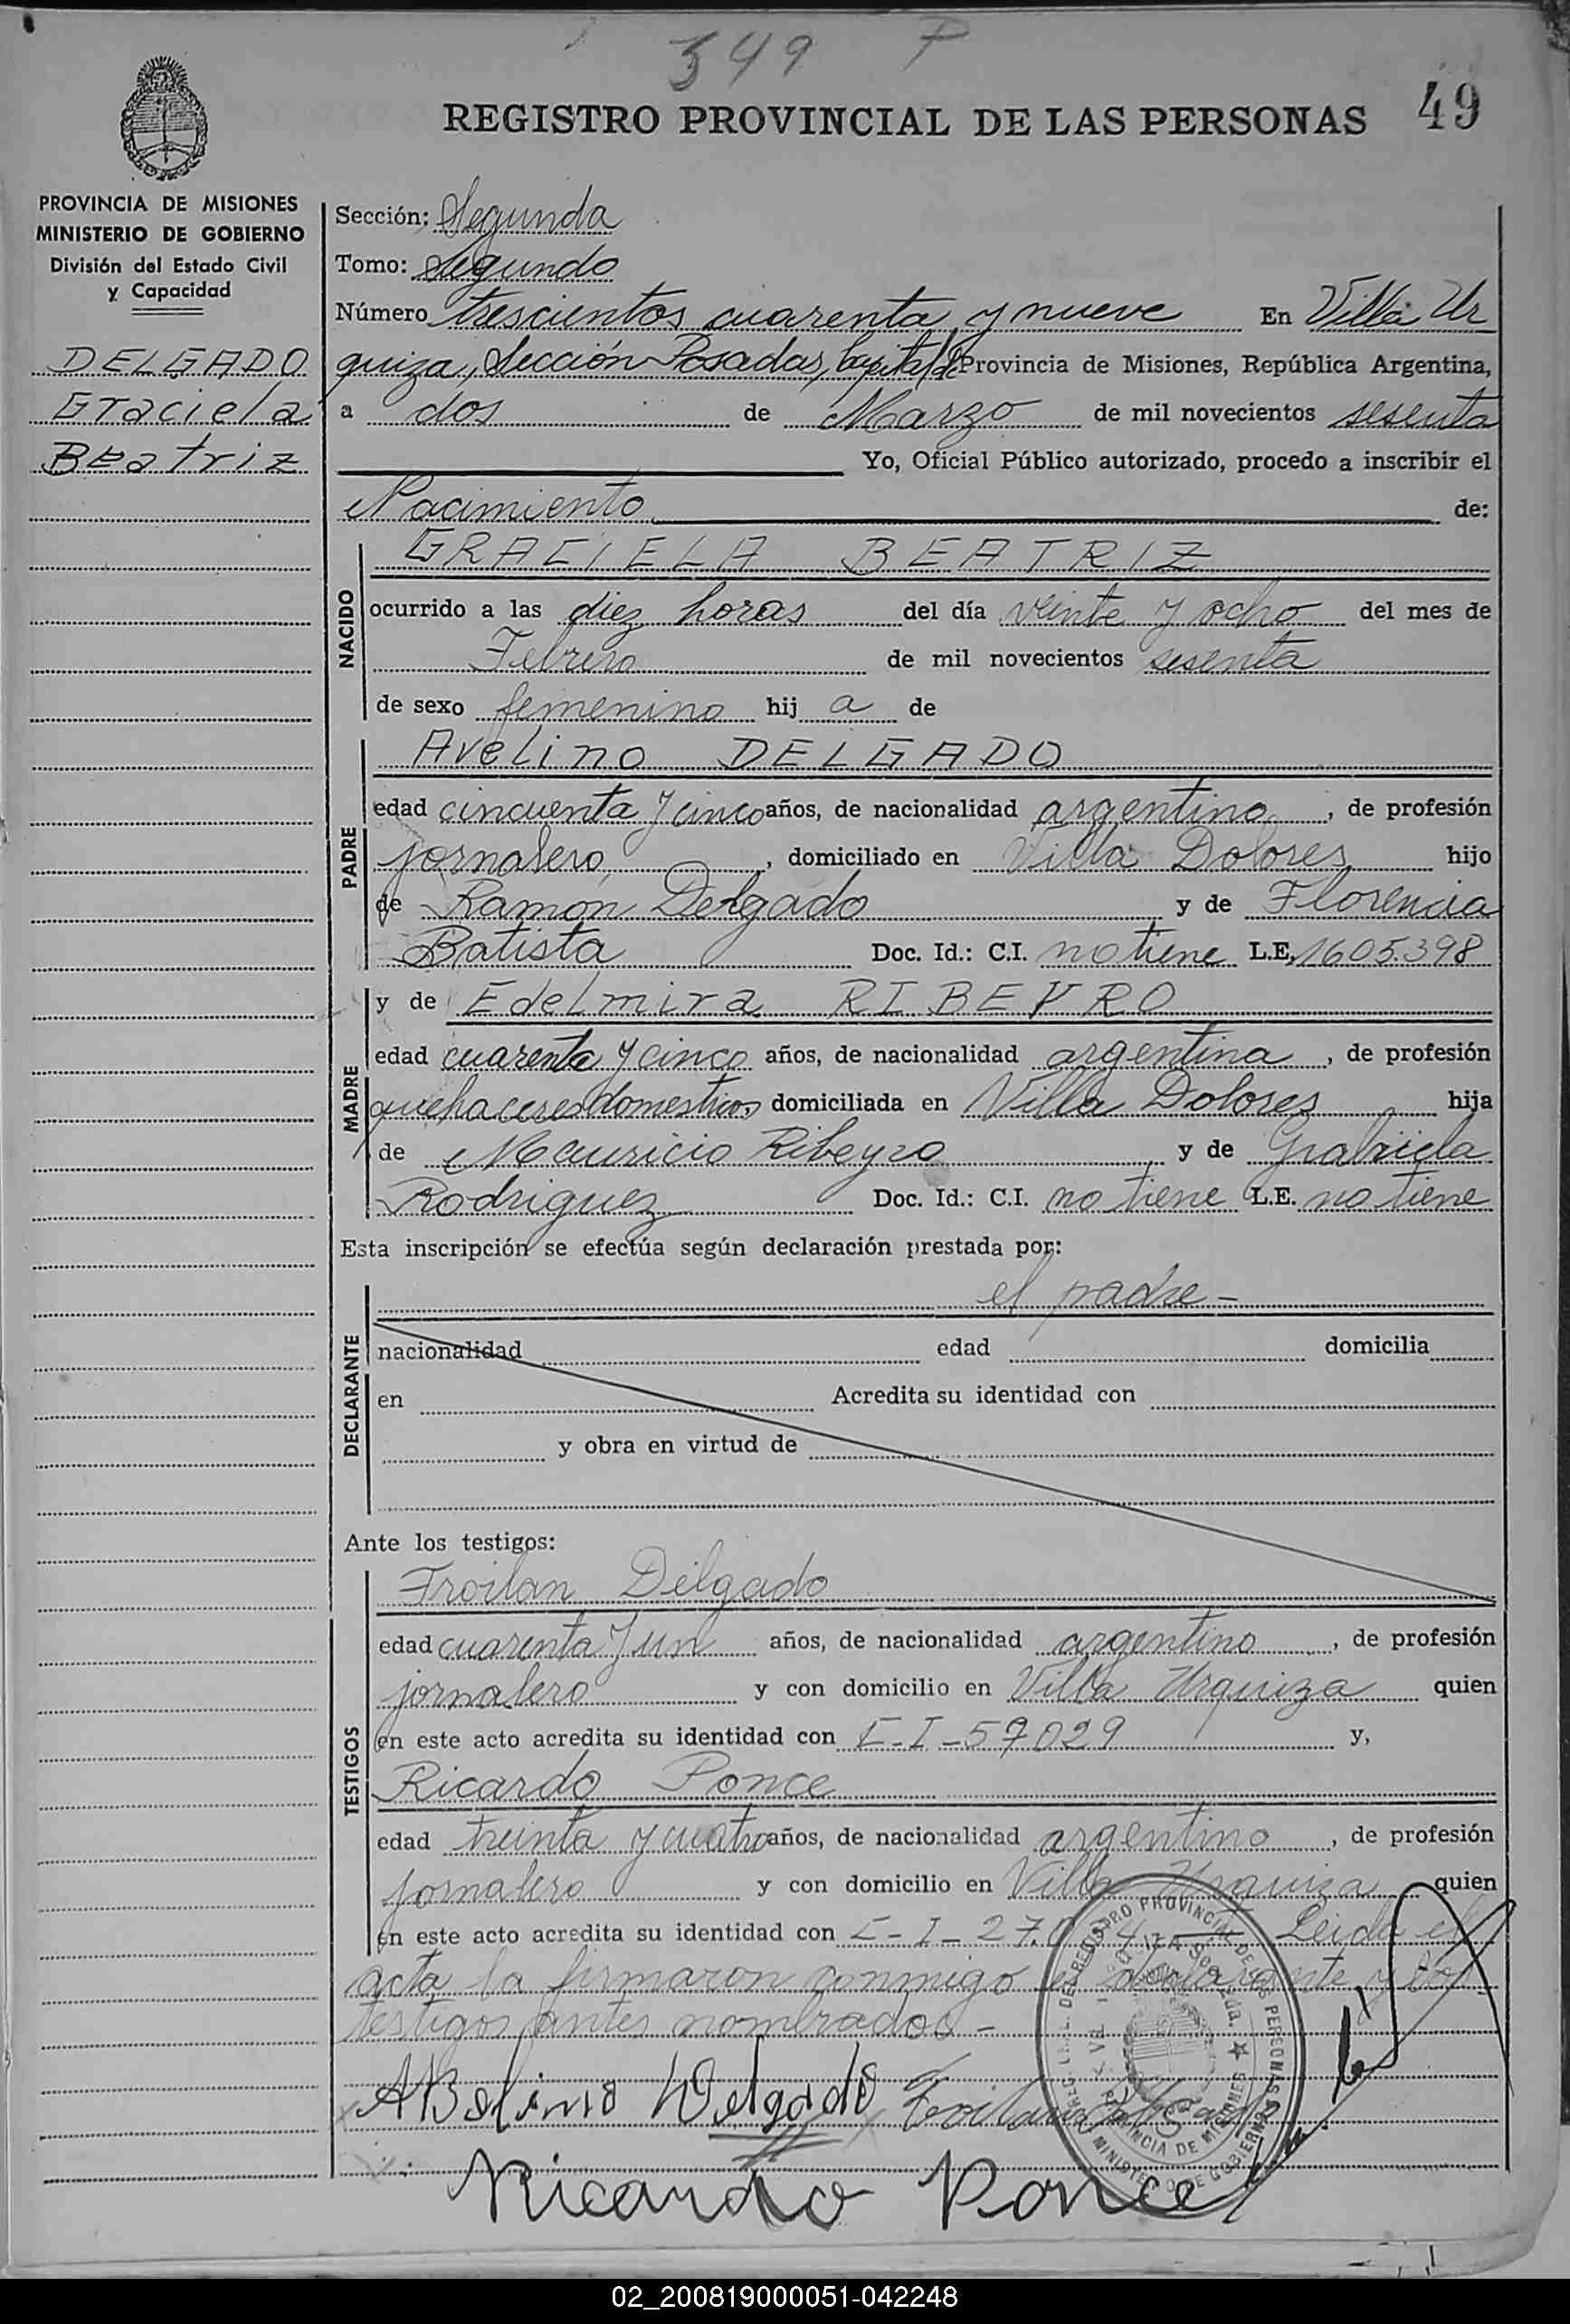 349 P
REGISTRO PROVINCIAL DE LAS PERSONAS 49
PROVINCIA DE MISIONES
MINISTERIO DE GOBIERNO
División del Estado Civil
y Capacidad
DELGADO
Graciela
Beatriz
Sección: Segunda
Tomo: Segundo
Número trescientos cuarenta y nueve En Villa Ur
quiza, Sección Posadas, Capital de Provincia de Misiones, República Argentina,
a dos de Marzo de mil novecientos sesenta
Yo, Oficial Público autorizado, procedo a inscribir el
Nacimiento de:
NACIDO
GRACIELA BEATRIZ
ocurrido a las diez horas del día veinte y ocho del mes de
Febrero de mil novecientos sesenta
de sexo femenino hij a de
PADRE
Avelino DELGADO
edad cincuenta y cinco años, de nacionalidad argentino, de profesión
jornalero, domiciliado en Villa Dolores hijo
de Ramón Delgado y de Florencia
Batista Doc. Id.: C.I. no tiene L.E. 1605.398
MADRE
y de Edelmira RIBEYRO
edad cuarenta y cinco años, de nacionalidad argentina, de profesión
quehaceres domesticos, domiciliada en Villa Dolores hija
de Mauricio Ribeyro y de Grabiela
Rodriguez Doc. Id.: C.I. no tiene L.E. no tiene
Esta inscripción se efectúa según declaración prestada por:
DECLARANTE
el padre -
nacionalidad edad domicilia
en Acredita su identidad con
y obra en virtud de
Ante los testigos:
TESTIGOS
Froilan Delgado
edad cuarenta y un años, de nacionalidad argentino, de profesión
jornalero y con domicilio en Villa Urquiza quien
en este acto acredita su identidad con C-I-57029 y,
Ricardo Ponce
edad treinta y cuatro años, de nacionalidad argentino, de profesión
jornalero y con domicilio en Villa Urquiza quien
en este acto acredita su identidad con C-I-27.0 Leida el
acta la firmaron conmigo el declarante y los
testigos antes nombrados -
ABelino Delgado Froilan Delgado
Ricardo Ponce
PROVINCIA DE MISIONES
02_200819000051-042248